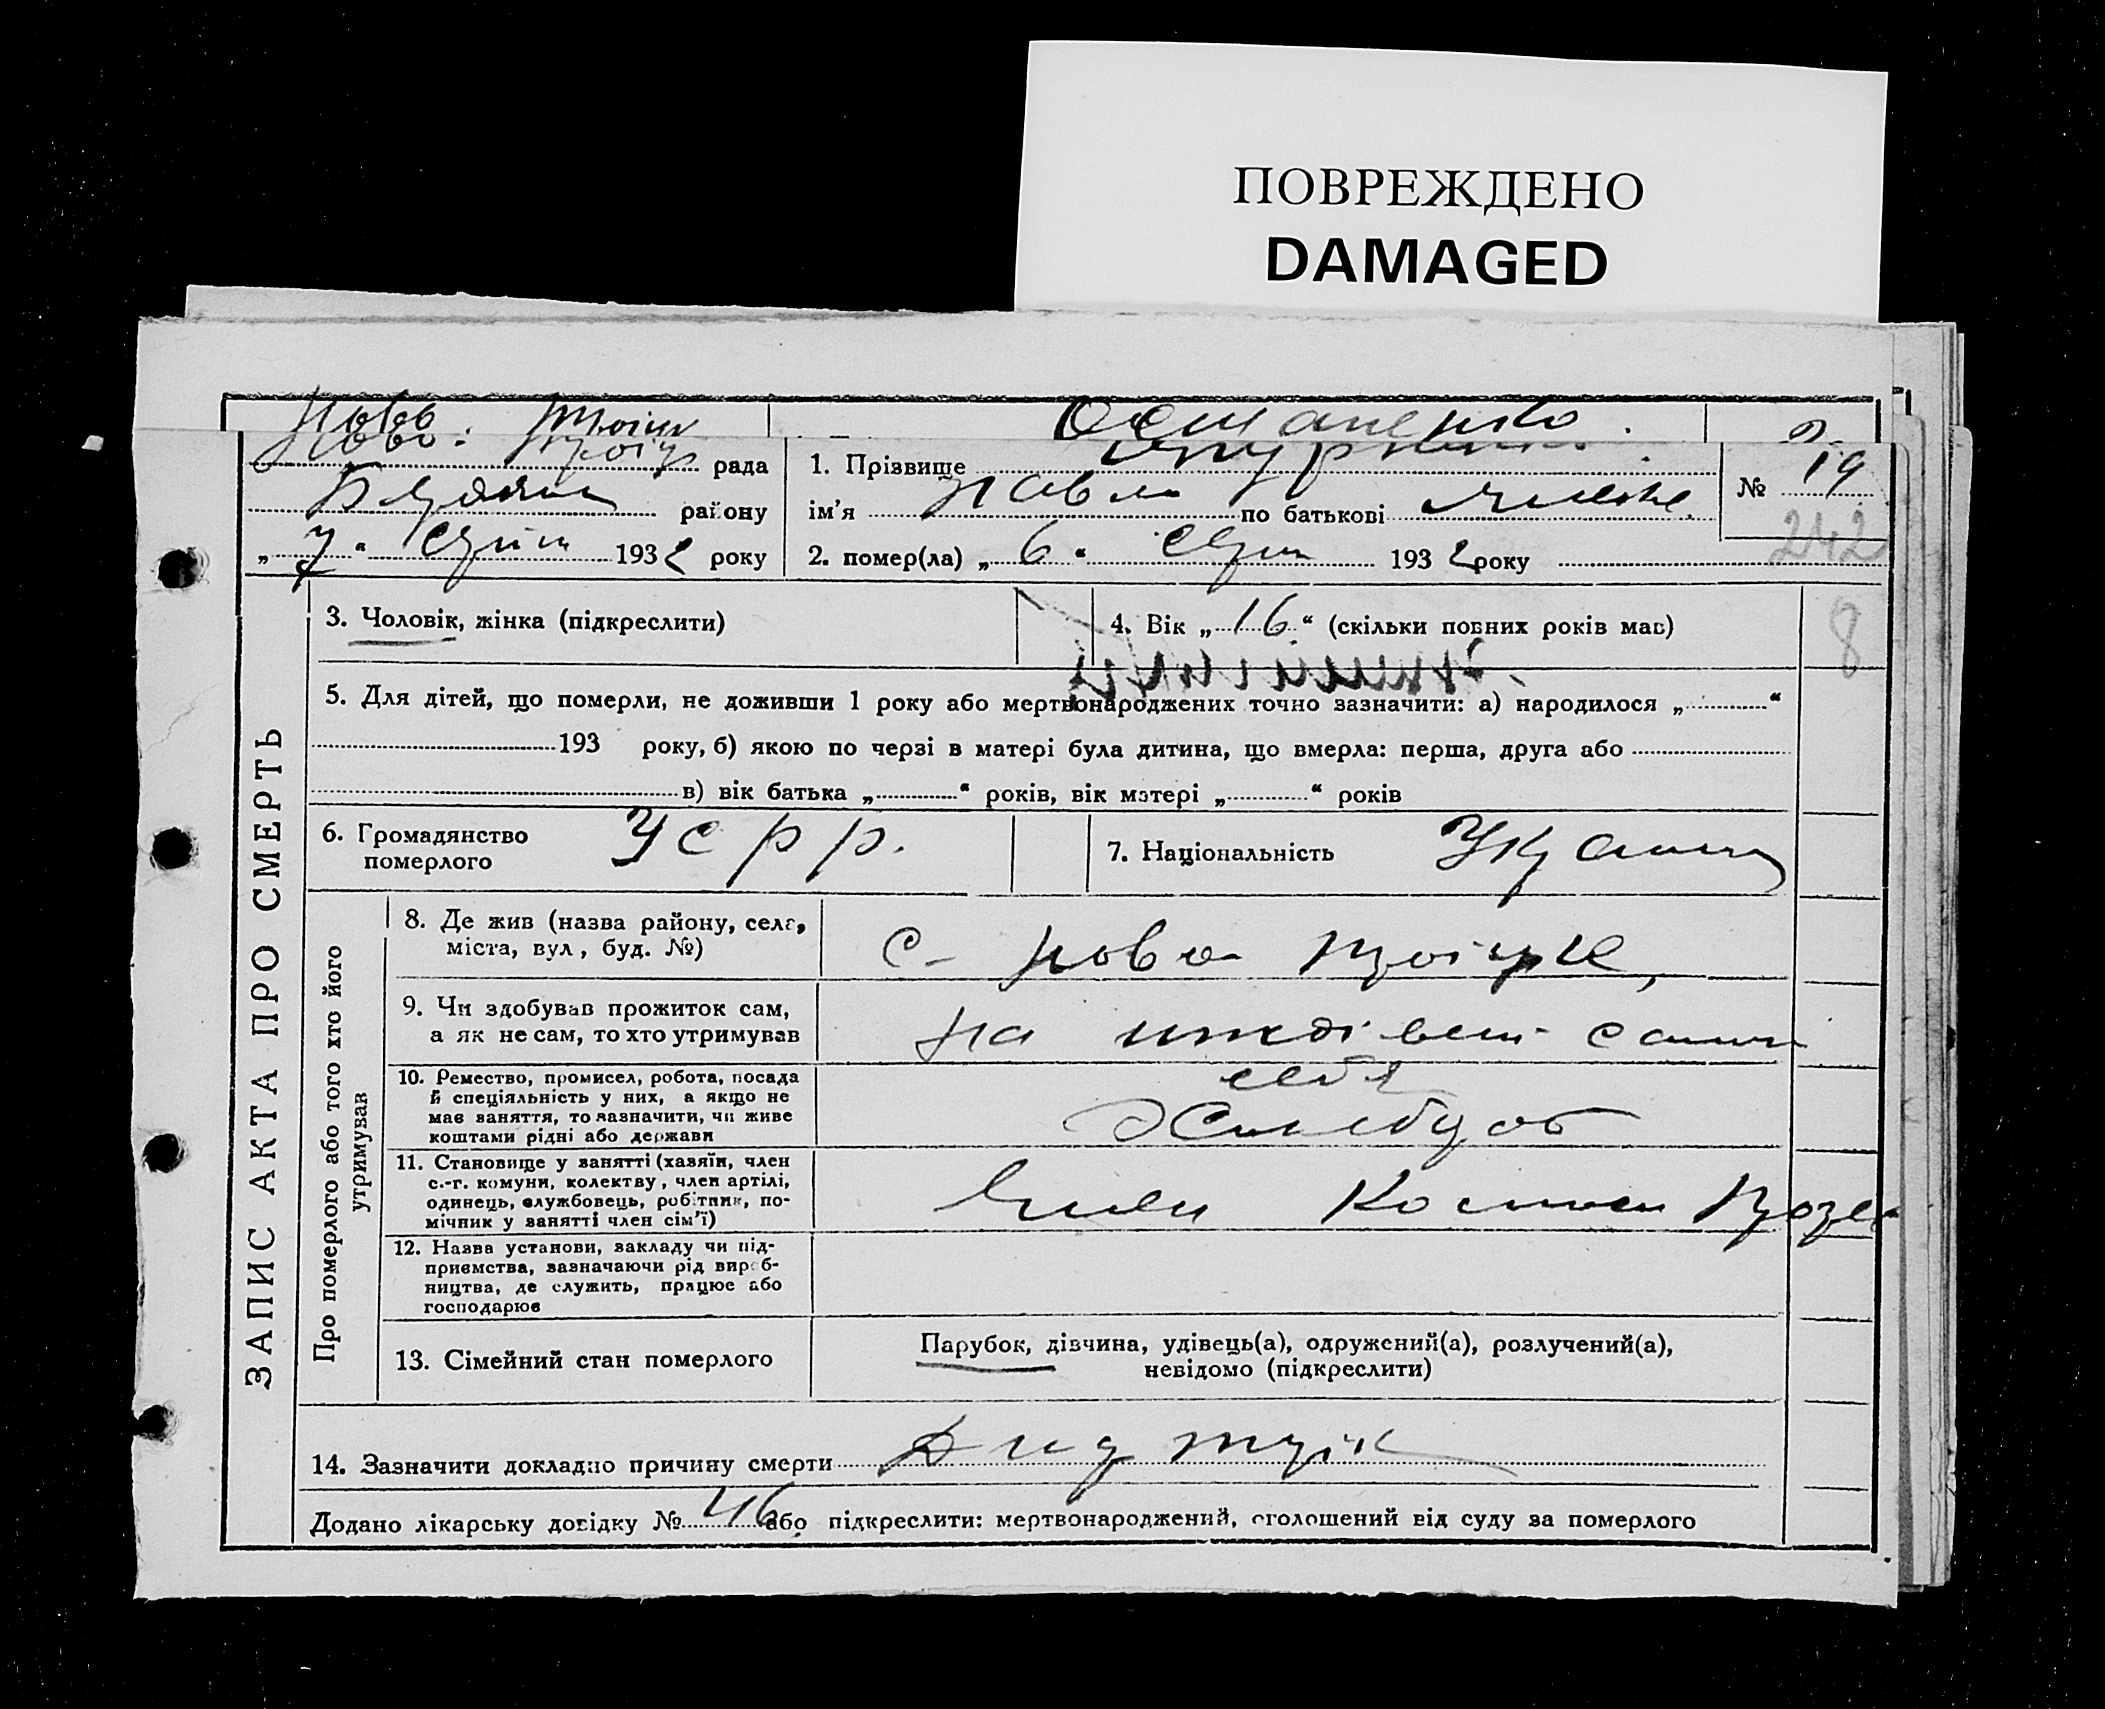 ПОВРЕЖДЕНО
DAMAGED
Ново
Ново: рада
району
„ 7 “ 1932 року
1. Прізвище
ім'я Павло по батькові
2. помер(ла) „ 6 “ 1932 року
№ 19
242
ЗАПИС АКТА ПРО СМЕРТЬ
3. Чоловік, жінка (підкреслити)
4. Вік „ 16 “ (скільки повних років мав)
8
5. Для дітей, що померли, не доживши 1 року або мертвонароджених точно зазначити: а) народилося „ “
193 року, б) якою по черзі в матері була дитина, що вмерла: перша, друга або
в) вік батька „ “ років, вік матері „ “ років
6. Громадянство
померлого
УСРР.
7. Національність
Про померлого або того хто його
утримував
8. Де жив (назва району, села,
міста, вул, буд. №)
с- Ново
9. Чи здобував прожиток сам,
а як не сам, то хто утримував
на
себя
10. Ремество, промисел, робота, посада
й спеціяльність у них, а якщо не
має заняття, то зазначити, чи живе
коштами рідні або держави
11. Становище у занятті (хазяїн, член
с.-г. комуни, колектву, член артілі,
одинець, службовець, робітник, по-
мічник у занятті член сім'ї)
Член
12. Назва установи, закладу чи під-
приємства, зазначаючи рід вироб-
ництва, де служить, працює або
господарює
13. Сімейний стан померлого
Парубок, дівчина, удівець(а), одружений(а), розлучений(а),
невідомо (підкреслити)
14. Зазначити докладно причину смерти
Додано лікарську довідку № 46 або підкреслити: мертвонароджений, оголошений від суду за померлого